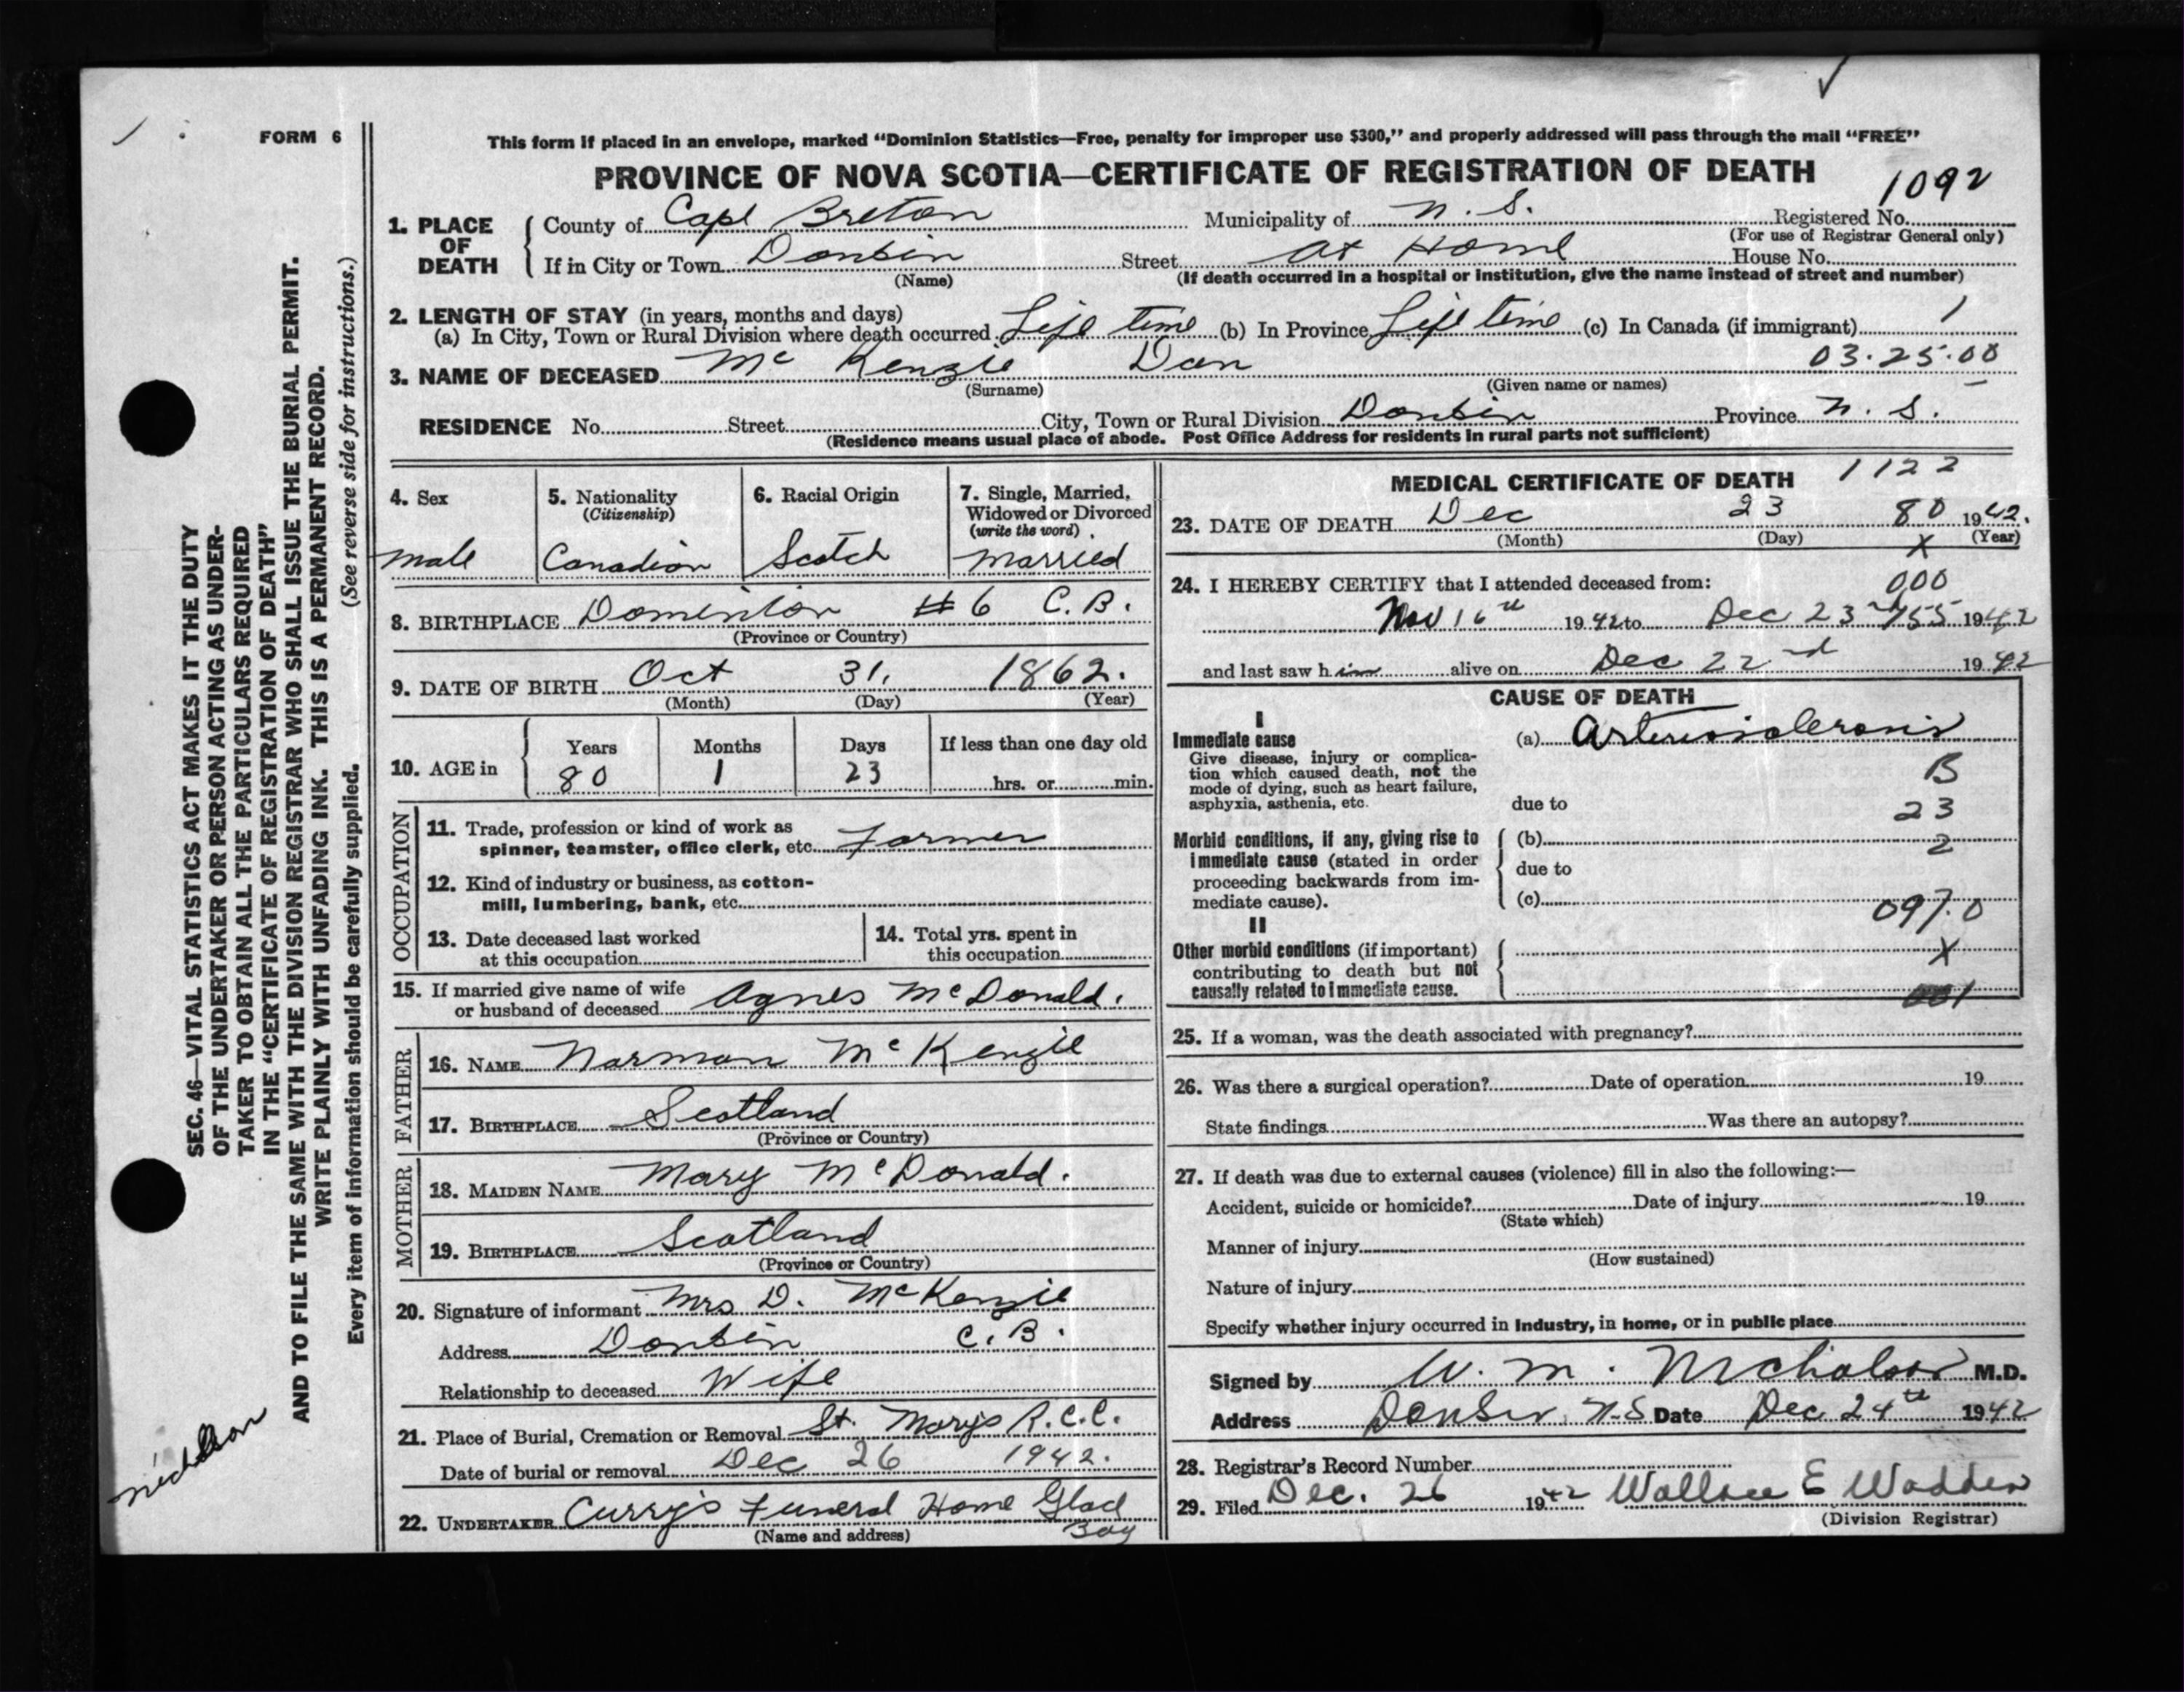 FORM 6
This form if placed in an envelope, marked “Dominion Statistics—Free, penalty for improper use $300,” and properly addressed will pass through the mail “FREE”
PROVINCE OF NOVA SCOTIA—CERTIFICATE OF REGISTRATION OF DEATH
1092
1. PLACE OF DEATH County of Cape Breton Municipality of N. S. Registered No.
(For use of Registrar General only)
If in City or Town Donkin Street At Home House No.
(Name) (If death occurred in a hospital or institution, give the name instead of street and number)
2. LENGTH OF STAY (in years, months and days)
(a) In City, Town or Rural Division where death occurred Life time (b) In Province Life time (c) In Canada (if immigrant) 1
03.25.00
3. NAME OF DECEASED Mc Kenzie Dan
(Surname) (Given name or names)
RESIDENCE No. Street City, Town or Rural Division Donkin Province N. S.
(Residence means usual place of abode. Post Office Address for residents in rural parts not sufficient)
4. Sex male
5. Nationality (Citizenship) Canadian
6. Racial Origin Scotch
7. Single, Married, Widowed or Divorced (write the word) married
8. BIRTHPLACE Dominion #6 C. B.
(Province or Country)
9. DATE OF BIRTH Oct 31, 1862.
(Month) (Day) (Year)
10. AGE in Years 80 Months 1 Days 23 If less than one day old hrs. or min.
OCCUPATION
11. Trade, profession or kind of work as
spinner, teamster, office clerk, etc. Farmer
12. Kind of industry or business, as cotton-
mill, lumbering, bank, etc.
13. Date deceased last worked
at this occupation
14. Total yrs. spent in
this occupation
15. If married give name of wife
or husband of deceased Agnes McDonald.
FATHER
16. NAME Norman McKenzie
17. BIRTHPLACE Scotland
(Province or Country)
MOTHER
18. MAIDEN NAME Mary McDonald.
19. BIRTHPLACE Scotland
(Province or Country)
20. Signature of informant Mrs D. McKenzie
Address Donkin C. B.
Relationship to deceased Wife
21. Place of Burial, Cremation or Removal St. Mary's R.C.C.
Date of burial or removal Dec 26 1942.
22. UNDERTAKER Curry's Funeral Home Glad Bay
(Name and address)
MEDICAL CERTIFICATE OF DEATH 1122
23. DATE OF DEATH Dec 23 80 1942.
(Month) (Day) X (Year)
24. I HEREBY CERTIFY that I attended deceased from: 000
Nov 16th 1942 to Dec 23rd 155 1942
and last saw him alive on Dec 22nd 1942
CAUSE OF DEATH
I
Immediate cause (a) Arteriosclerosis
Give disease, injury or complica-
tion which caused death, not the
mode of dying, such as heart failure,
asphyxia, asthenia, etc. due to
B
23
Morbid conditions, if any, giving rise to (b) 2
immediate cause (stated in order
proceeding backwards from im-
mediate cause).
due to
(c)
097.0
II
Other morbid conditions (if important)
contributing to death but not
causally related to immediate cause.
X
001
25. If a woman, was the death associated with pregnancy?
26. Was there a surgical operation? Date of operation 19
State findings Was there an autopsy?
27. If death was due to external causes (violence) fill in also the following:—
Accident, suicide or homicide? Date of injury 19
(State which)
Manner of injury
(How sustained)
Nature of injury
Specify whether injury occurred in Industry, in home, or in public place
Signed by W. M. Nicholson M.D.
Address Donkin, N.S Date Dec 24th 1942
28. Registrar's Record Number
29. Filed Dec. 26 1942 Wallace E Wadden
(Division Registrar)
SEC. 46—VITAL STATISTICS ACT MAKES IT THE DUTY
OF THE UNDERTAKER OR PERSON ACTING AS UNDER-
TAKER TO OBTAIN ALL THE PARTICULARS REQUIRED
IN THE “CERTIFICATE OF REGISTRATION OF DEATH”
AND TO FILE THE SAME WITH THE DIVISION REGISTRAR WHO SHALL ISSUE THE BURIAL PERMIT.
WRITE PLAINLY WITH UNFADING INK. THIS IS A PERMANENT RECORD.
(See reverse side for instructions.)
Every item of information should be carefully supplied.
Nicholson